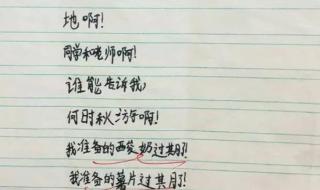 地啊!
同学和老师啊!
谁能告诉我,
何时秋游啊!
我准备的酸奶过期了!
我准备的薯片过期了!